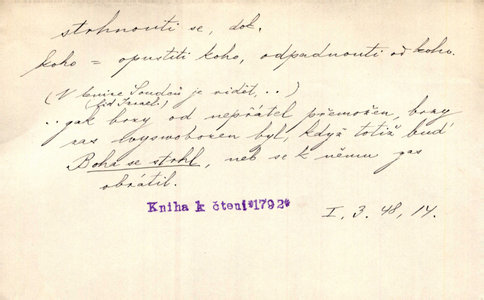 strhnouti se, dok.
koho = opustiti koho, odpadnouti od koho.
(V knize Soudců je viděti, ..)
(lid Israel.)
.. jak brzy od nepřátel přemožen, brzy
zas vysvobozen byl, když totiž buď
Boha se strhl, neb se k němu zas
obrátil.
Kniha k čtení *1792*
I, 3. 48, 14.